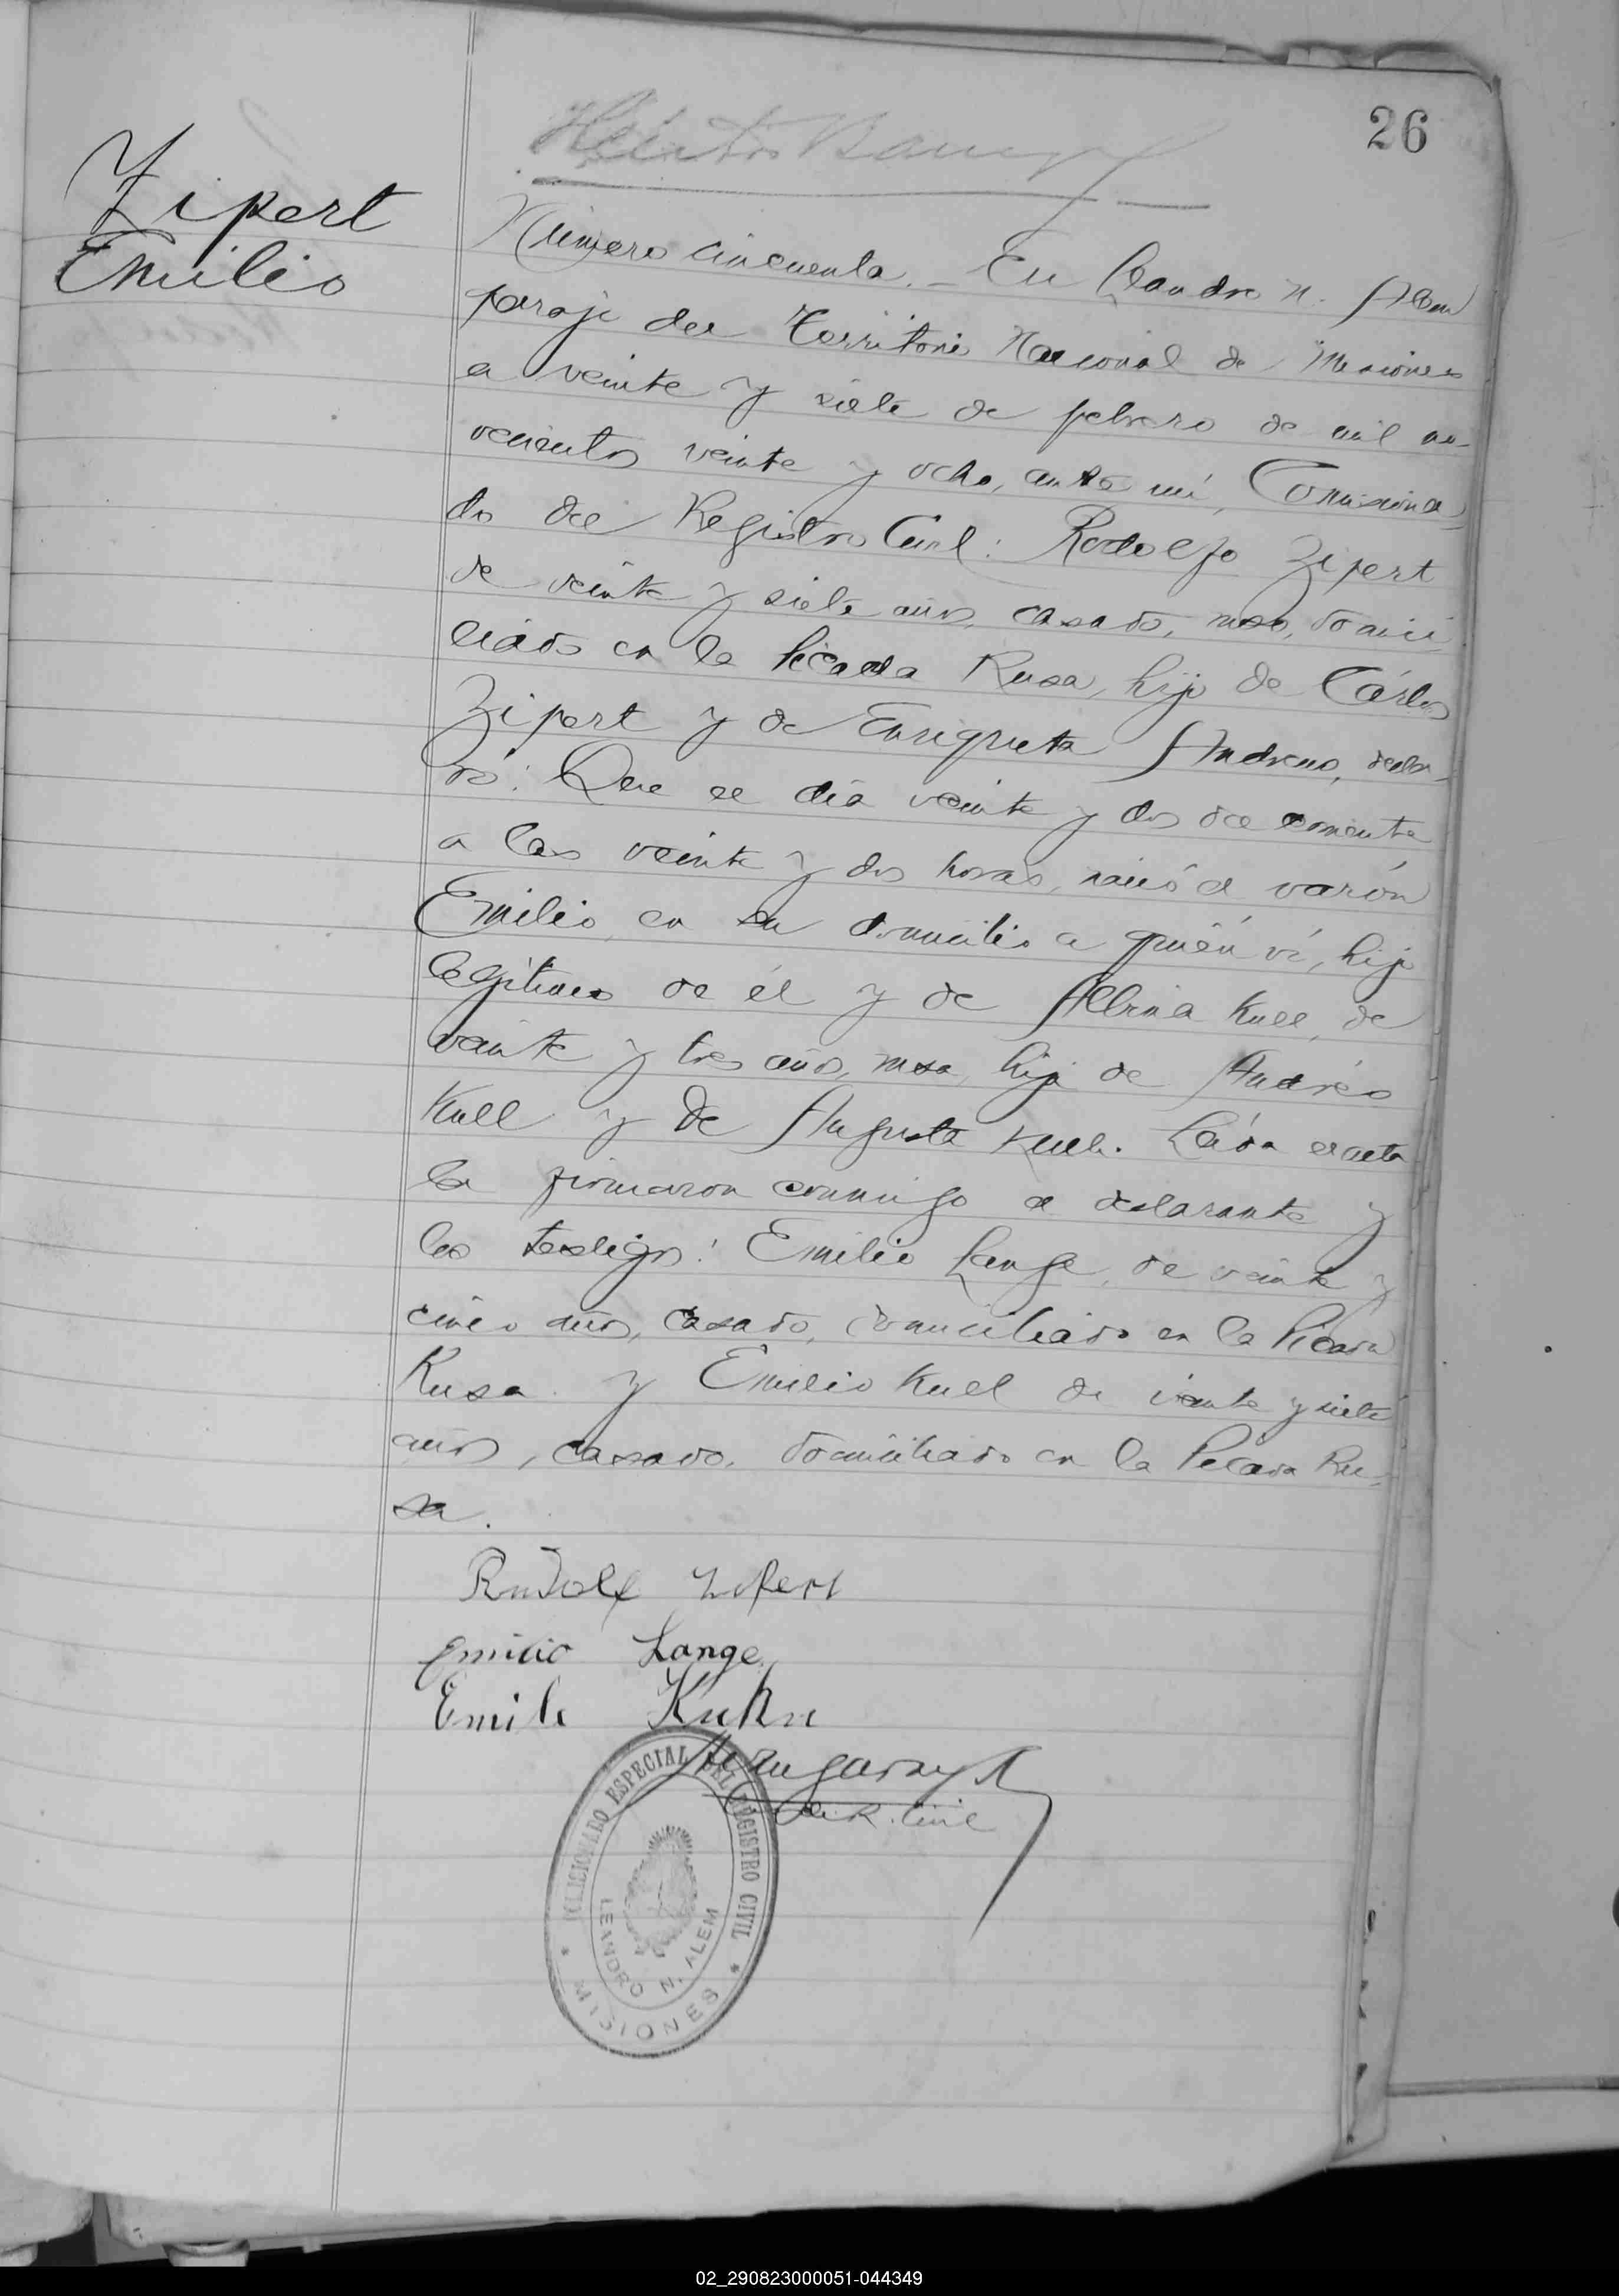 26
Zipert
Emilio
Número cincuenta.- En Leandro N. Alem
paraje del Territorio Nacional de Misiones
a veinte y siete de febrero de mil no-
vecientos veinte y ocho, ante mí, Comisiona-
do del Registro Civil: Rodolfo Zipert
de veinte y siete años, casado, ruso, domici-
liado en la Picada Rusa, hijo de Cárlos
Zipert y de Enriqueta Andreus, decla-
ró: Que el día veinte y dos del corriente
a las veinte y dos horas, nació el varón
Emilio, en su domicilio a quién ví, hijo
legítimo de él y de Albina Kull, de
veinte y tres años, rusa, hija de Andrés
Kull y de Augusta Kull. Leída el acta
la firmaron conmigo el declarante y
los testigos: Emilio Lange, de veinte y
cinco años, casado, domiciliado en la Picada
Rusa y Emilio Kull de veinte y siete
años, casado, domiciliado en la Picada Ru-
sa.
Rudolf Zipert
Emilio Lange
Emil Kuhn
R. Civil
ESPECIAL DEL REGISTRO CIVIL
LEANDRO N. ALEM
* MISIONES *
02_290823000051-044349